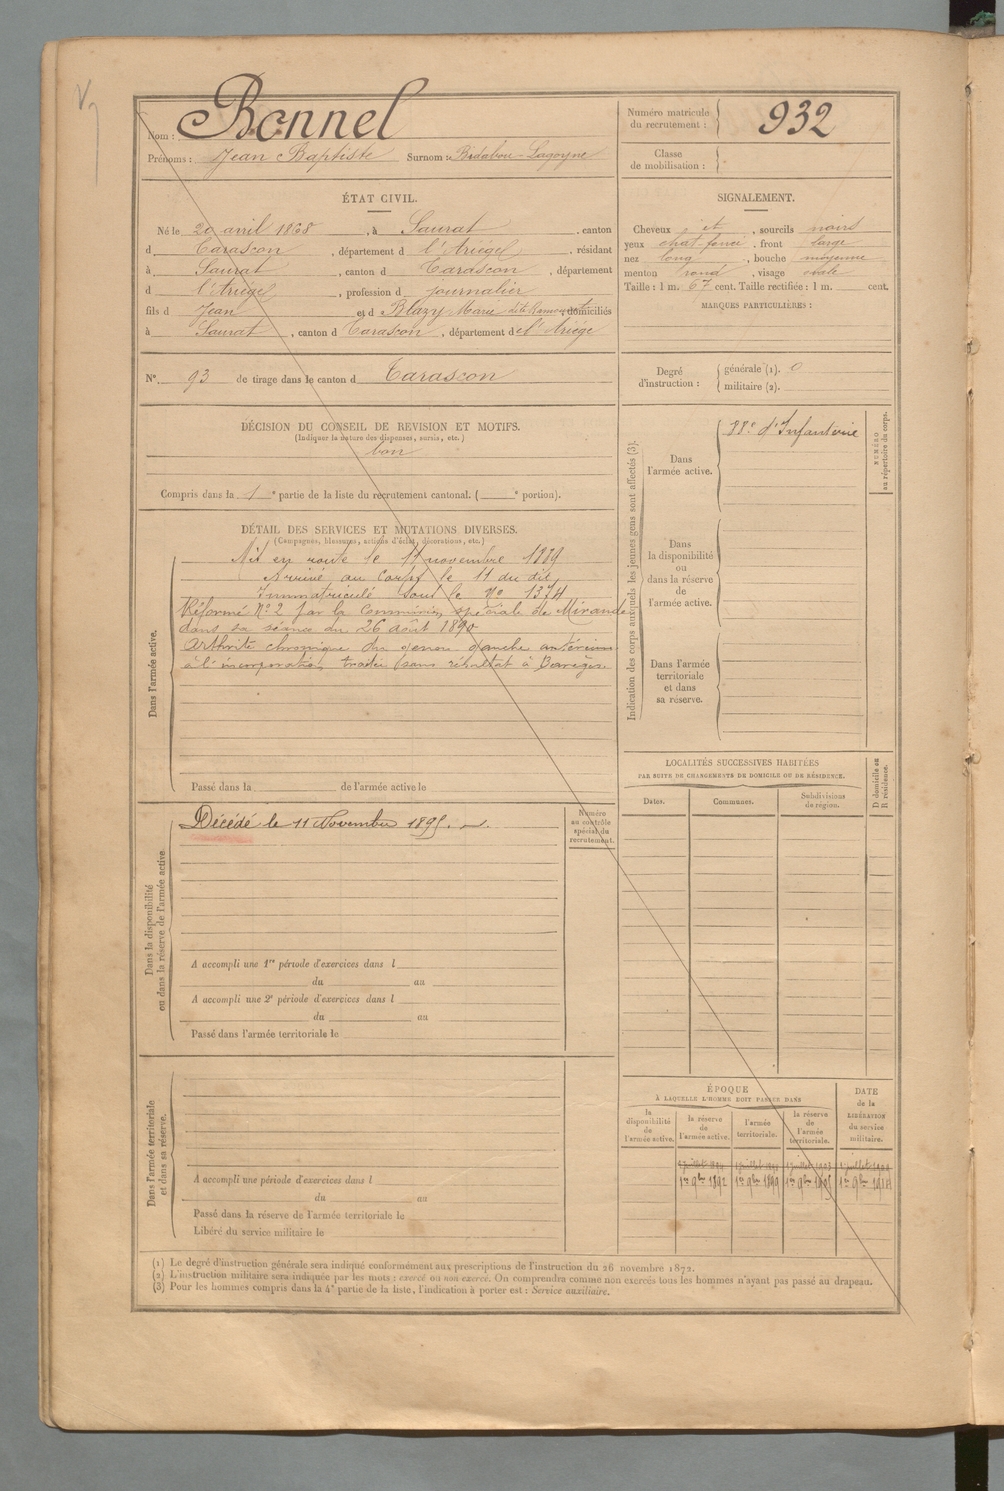 Nom : Bonnel
Prénoms : Jean Baptiste Surnom : Bidabou-Lagoyne
Numéro matricule du recrutement : 932
Classe de mobilisation :
ÉTAT CIVIL.
Né le 20 avril 1868, à Saurat, canton
d Tarascon, département d l'Ariège, résidant
à Saurat, canton d Tarascon, département
d l'Ariège, profession d journalier
fils d Jean et d Blazy Marie domiciliés
à Saurat, canton d Tarascon, département de l'Ariège
N° 93 de tirage dans le canton d Tarascon
SIGNALEMENT.
Cheveux et, sourcils noirs
yeux chat. foncé, front large
nez long, bouche moyenne
menton rond, visage ovale
Taille : 1 m. 67 cent. Taille rectifiée : 1 m. cent.
MARQUES PARTICULIÈRES :
Degré d'instruction :
générale (1). 0
militaire (2).
DÉCISION DU CONSEIL DE REVISION ET MOTIFS.
(Indiquer la nature des dispenses, sursis, etc.)
bon
Compris dans la 1e partie de la liste du recrutement cantonal. ( e portion).
DÉTAIL DES SERVICES ET MUTATIONS DIVERSES.
(Campagnes, blessures, actions d'éclat, décorations, etc.)
Dans l'armée active.
Mis en route le 11 novembre 1889
Arrivé au Corps le 11 du dit
Immatriculé sous le N° 1374
Réformé N° 2 par la Commission spéciale de Mirande
dans sa séance du 26 août 1890
Arthrite chronique du genou gauche antérieure
à l'incorporation, traitée sans résultat à Barèges.
Passé dans la de l'armée active le
Indication des corps auxquels les jeunes gens sont affectés (3).
Dans l'armée active.
88e d'Infanterie
NUMÉRO au répertoire du corps.
Dans la disponibilité ou dans la réserve de l'armée active.
Dans l'armée territoriale et dans sa réserve.
Dans la disponibilité ou dans la réserve de l'armée active
Décédé le 11 Novembre 1895.
Numéro au contrôle spécial du recrutement.
A accompli une 1re période d'exercices dans l
du au
A accompli une 2e période d'exercices dans l
du au
Passé dans l'armée territoriale le
LOCALITÉS SUCCESSIVES HABITÉES
PAR SUITE DE CHANGEMENTS DE DOMICILE OU DE RÉSIDENCE.
Dates.
Communes.
Subdivisions de région.
D domicile ou R résidence.
Dans l'armée territoriale et dans sa réserve.
A accompli une période d'exercices dans l
du au
Passé dans la réserve de l'armée territoriale le
Libéré du service militaire le
ÉPOQUE
À LAQUELLE L'HOMME DOIT PASSER DANS
la disponibilité de l'armée active.
la réserve de l'armée active.
l'armée territoriale.
la réserve de l'armée territoriale.
DATE de la LIBÉRATION du service militaire.
1er 9bre 1892
1er 9bre 1899
(1) Le degré d'instruction générale sera indiqué conformément aux prescriptions de l'instruction du 26 novembre 1872.
(2) L'instruction militaire sera indiquée par les mots : exercé ou non exercé. On comprendra comme non exercés tous les hommes n'ayant pas passé au drapeau.
(3) Pour les hommes compris dans la 4e partie de la liste, l'indication à porter est : Service auxiliaire.